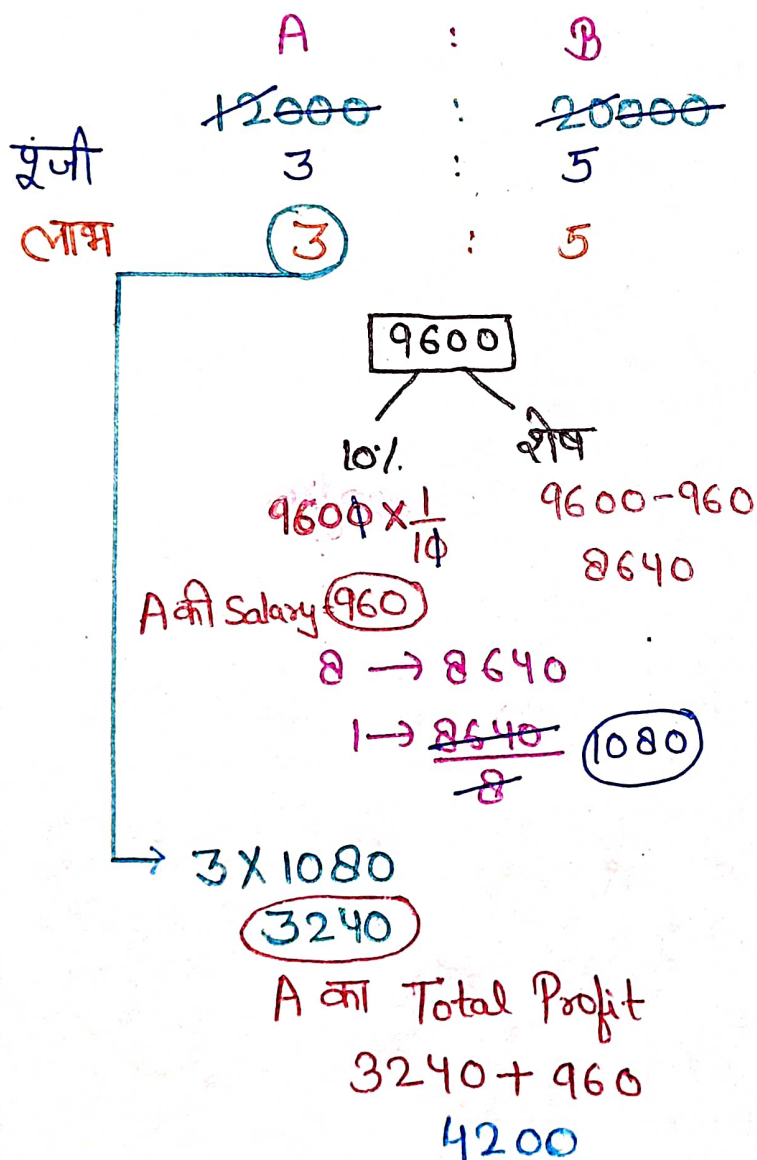 A : B
12000 : 20000
पूंजी 3 : 5
लाभ 3 : 5
9600
10% शेष
9600 × 1/10 9600-960
8640
A की Salary 960
8 → 8640
1 → 8640/8 1080
→ 3 X 1080
3240
A का Total Profit
3240 + 960
4200